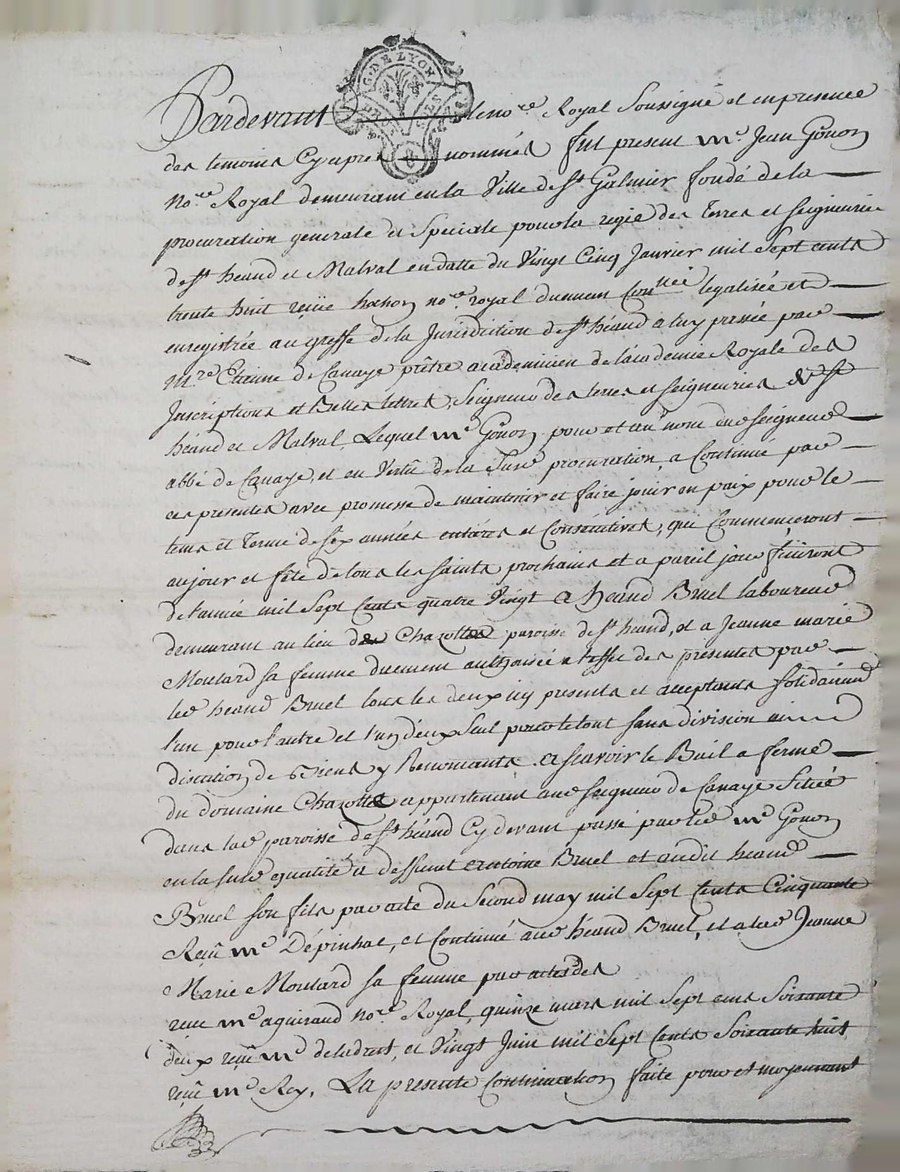 G. DE LYON
Pardevant le no.re Royal Soussigné et en presence
des temoins Cy apres nommés fut present m.e Jean Gonon
no.re Royal demeurant en la Ville de St Galmier fondé de la
procuration generale et Speciale pour la regie des Terres et Seigneuries
de St heand et Malval en datte du Vingt Cinq Janvier mil Sept cents
trente huit reçüe no.re royal duement legalisée et
enregistrée au greffe de la Jurisdiction de St héand a luy passée par
M.re Etienne de Canaye prêtre académicien de l'academie Royale des
Inscriptions et Belles lettres, Seigneur des terres et seigneuries de St
héand et Malval, Lequel m.e Gonon pour et au nom du seigneur
abbé de Canaye, et en Vertu de la procuration, a Continué par
ces presentes avec promesse de maintenir et faire jouir en paix pour le
tems et terme de six années entieres et Consécutives, qui Commenceront
au jour et fête de tous les saints prochains et a pareil jour finiront
de l'année mil Sept Cents quatre Vingt a héand Bruel laboureur
demeurant au lieu de Chazottes paroisse de St heand, et a Jeanne marie
Moulard sa femme duement authorisée a l'effet des presentes par
led heand Bruel tous les deux icy presents et acceptants solidairement
l'un pour l'autre et l'un d'eux Seul pour le tout sans division ni
discution de Biens y Renonçants. a scavoir le Bail a ferme
du domaine Chazottes appartenant aud seigneur de Canaye Situé
dans lad paroisse de St héand Cy devant passé par led m.e Gonon
en la susd qualité a deffunt antoine Bruel et audit heand
Bruel son fils par acte du Second may mil Sept Cents Cinquante
Reçu m.e Dépinhac, et Continué aud héand Bruel, et a lad Jeanne
Marie Moulard sa femme par actes des
reçu m.e aguiraud no.re Royal, quinze mars mil Sept cens Soixante
deux reçu m.e deladret, et Vingt Juin mil Sept Cents Soixante huit
reçu m.e Rey, La presente Continuation faite pour et moyennant